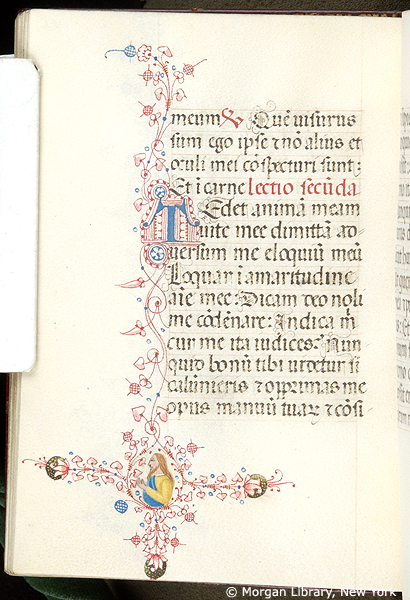 meum ℣ Quē visurus
sum ego ipse ⁊ nō alius et
oculi mei cōspecturi sunt:
Et ī carne lectio secūda
Tedet animā meam
vite mee dimittā ad
versum me eloquiū meū
Loquar ī amaritudine
aīe mee: Dicam deo noli
me cōdēnare: Indica m̄
cur me ita iudices: Nun
quid bonū tibi videtur si
calūnieris ⁊ opprimas me
opus manuū tuaꝝ ⁊ cōsi
© Morgan Library, New York